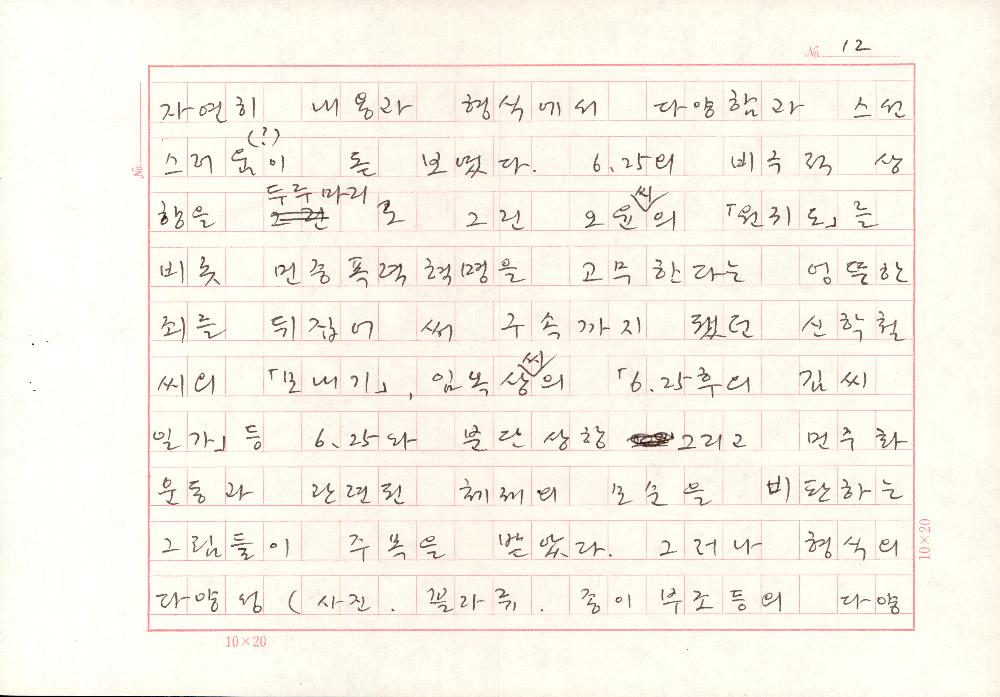 No. 12
자연히 내용과 형식에서 다양함과 스선
(?)
스러움이 돋보였다. 6.25의 비극적 상
두루마리 씨
황을 로 그린 오윤의 「원귀도」를
비롯 민중폭력혁명을 고무한다는 엉뚱한
죄를 뒤집어 써 구속까지 됐던 신학철
씨
씨의 「모내기」, 임옥상의 「6.25후의 김씨
일가」등 6.25와 분단상황 그리고 민주화
운동과 관련된 체제의 모순을 비판하는
그림들이 주목을 받았다. 그러나 형식의
다양성 (사진. 꼴라쥬. 종이 부조등의 다양
No.
10×20
10×20